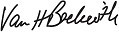 Van H Beckwith